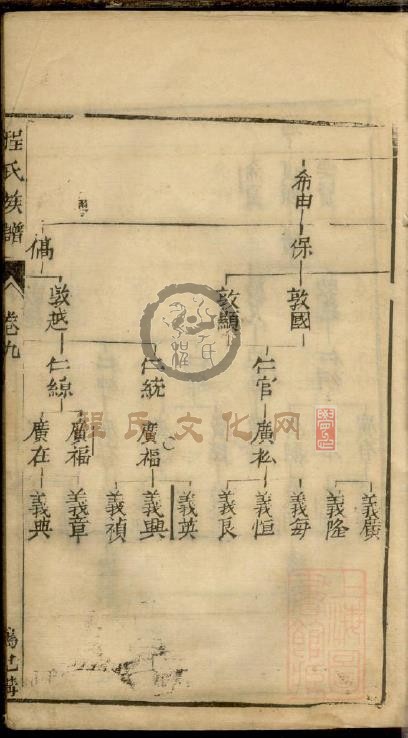 希由
保 僞
敦國 敦顯 敦越
仁官 仁統 仁線
廣松 廣福 廣福 廣在
義廣 義隆 義每 義恒 義良 義英 義興 義禎 義章 義典
程氏族譜
卷九
程氏文化网